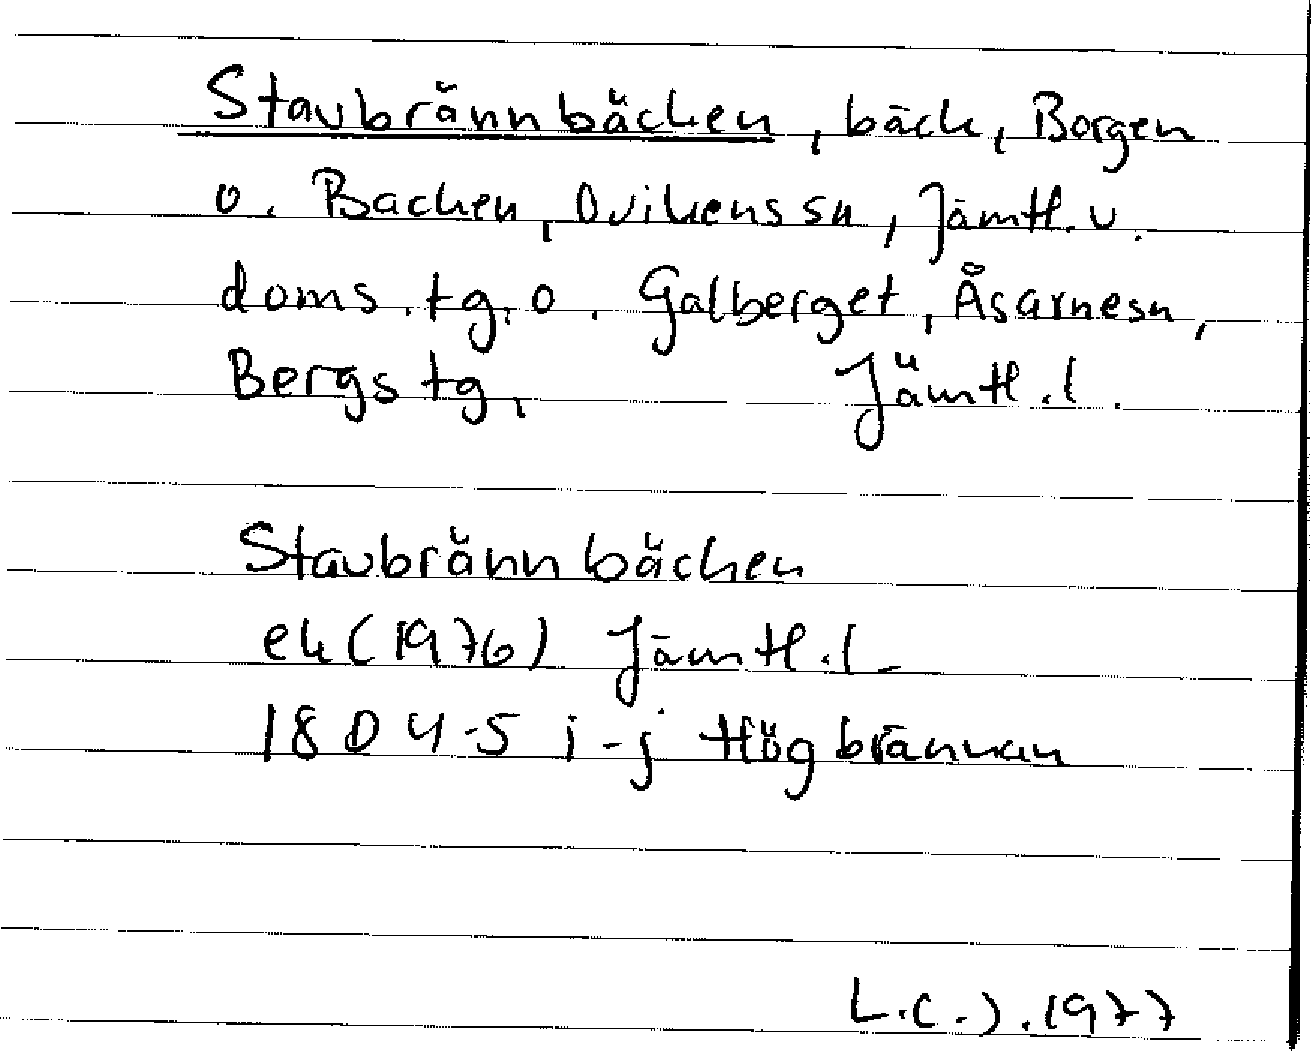 Staubrännbäcken, bäck, Borgen
o. Backen, Ovikens sn, Jämtl. v.
doms. tg. o. Galberget, Åsarne sn,
Bergs tg, Jämtl. l.
Staubrännbäcken
ek (1976) Jämtl. l.
18 D 4-5 i-j Högbrännan
L.C.J. 1977